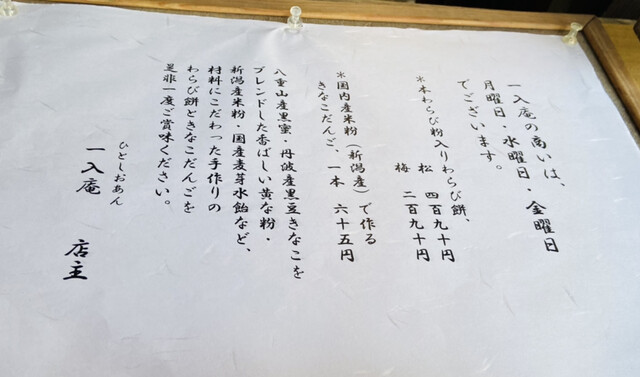 一入庵の商いは、
月曜日・水曜日・金曜日
でございます。
＊本わらび粉入りわらび餅、
松 四百九十円
梅 二百九十円
＊国内産米粉（新潟産）で作る
きなこだんご、一本 六十五円
八重山産黒蜜・丹波産黒豆きなこを
ブレンドした香ばしい黄な粉・
新潟産米粉・国産麦芽水飴など、
材料にこだわった手作りの
わらび餅ときなこだんごを
是非一度ご賞味ください。
ひとしおあん
一入庵 店主